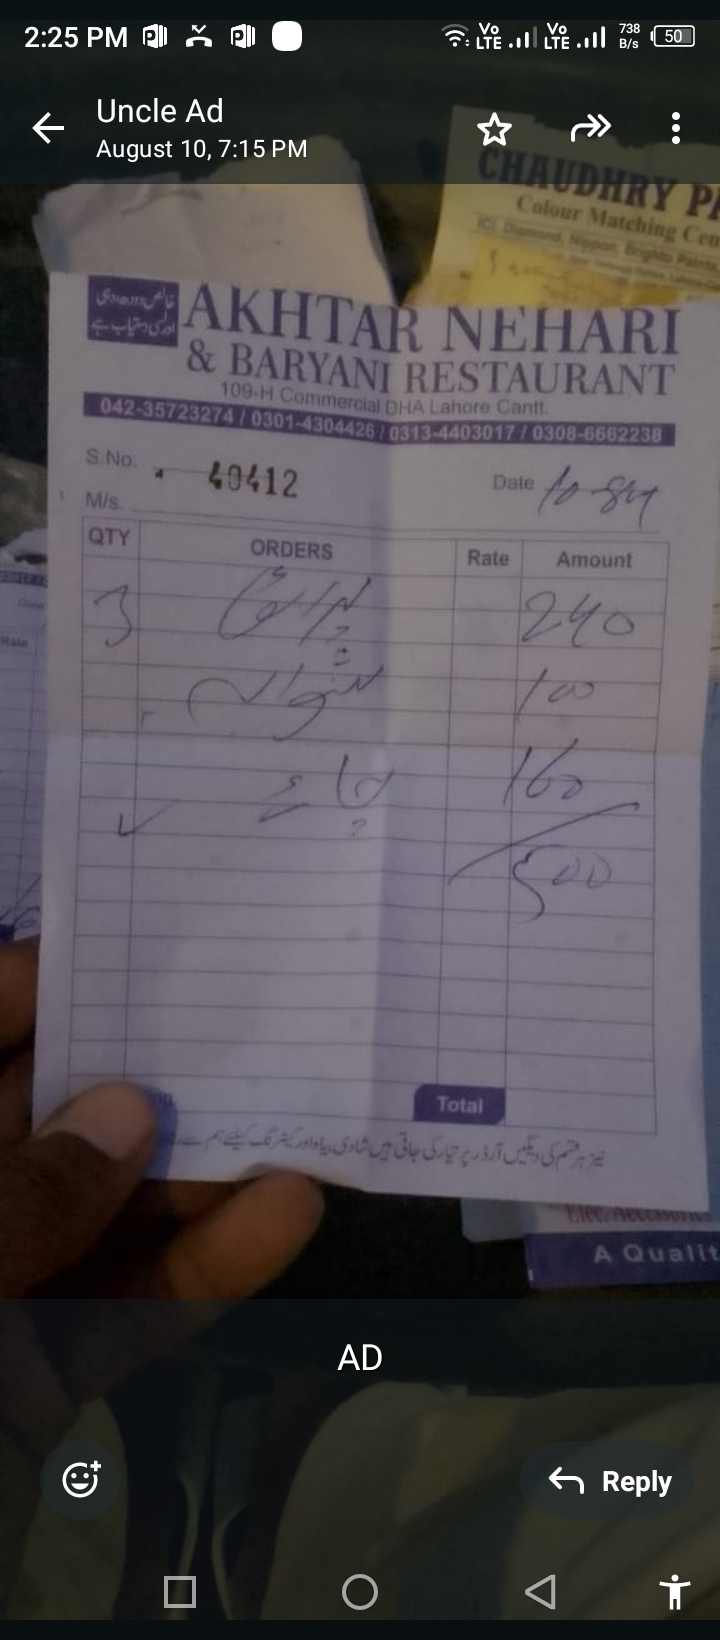 2:25 PM
Vo LTE Vo LTE 738 B/s 50
Uncle Ad
August 10, 7:15 PM
CHAUDHRY PA
Colour Matching Cen
ICI, Diamond, Nippon, Brighto Paints
خالص دودھ، دہی
اور لسی دستیاب ہے
AKHTAR NEHARI
& BARYANI RESTAURANT
109-H Commercial DHA Lahore Cantt.
042-35723274 / 0301-4304426 / 0313-4403017 / 0308-6662238
S.No. 40412
Date 10-8
M/s.
QTY ORDERS Rate Amount
3 پراٹھا 240
100
چائے 160
500
Total
نیز ہر قسم کی دیگیں آرڈر پر تیار کی جاتی ہیں شادی بیاہ اور کیٹرنگ کیلئے ہم سے
Rate
Elec. Accessories
A Qualit
AD
Reply